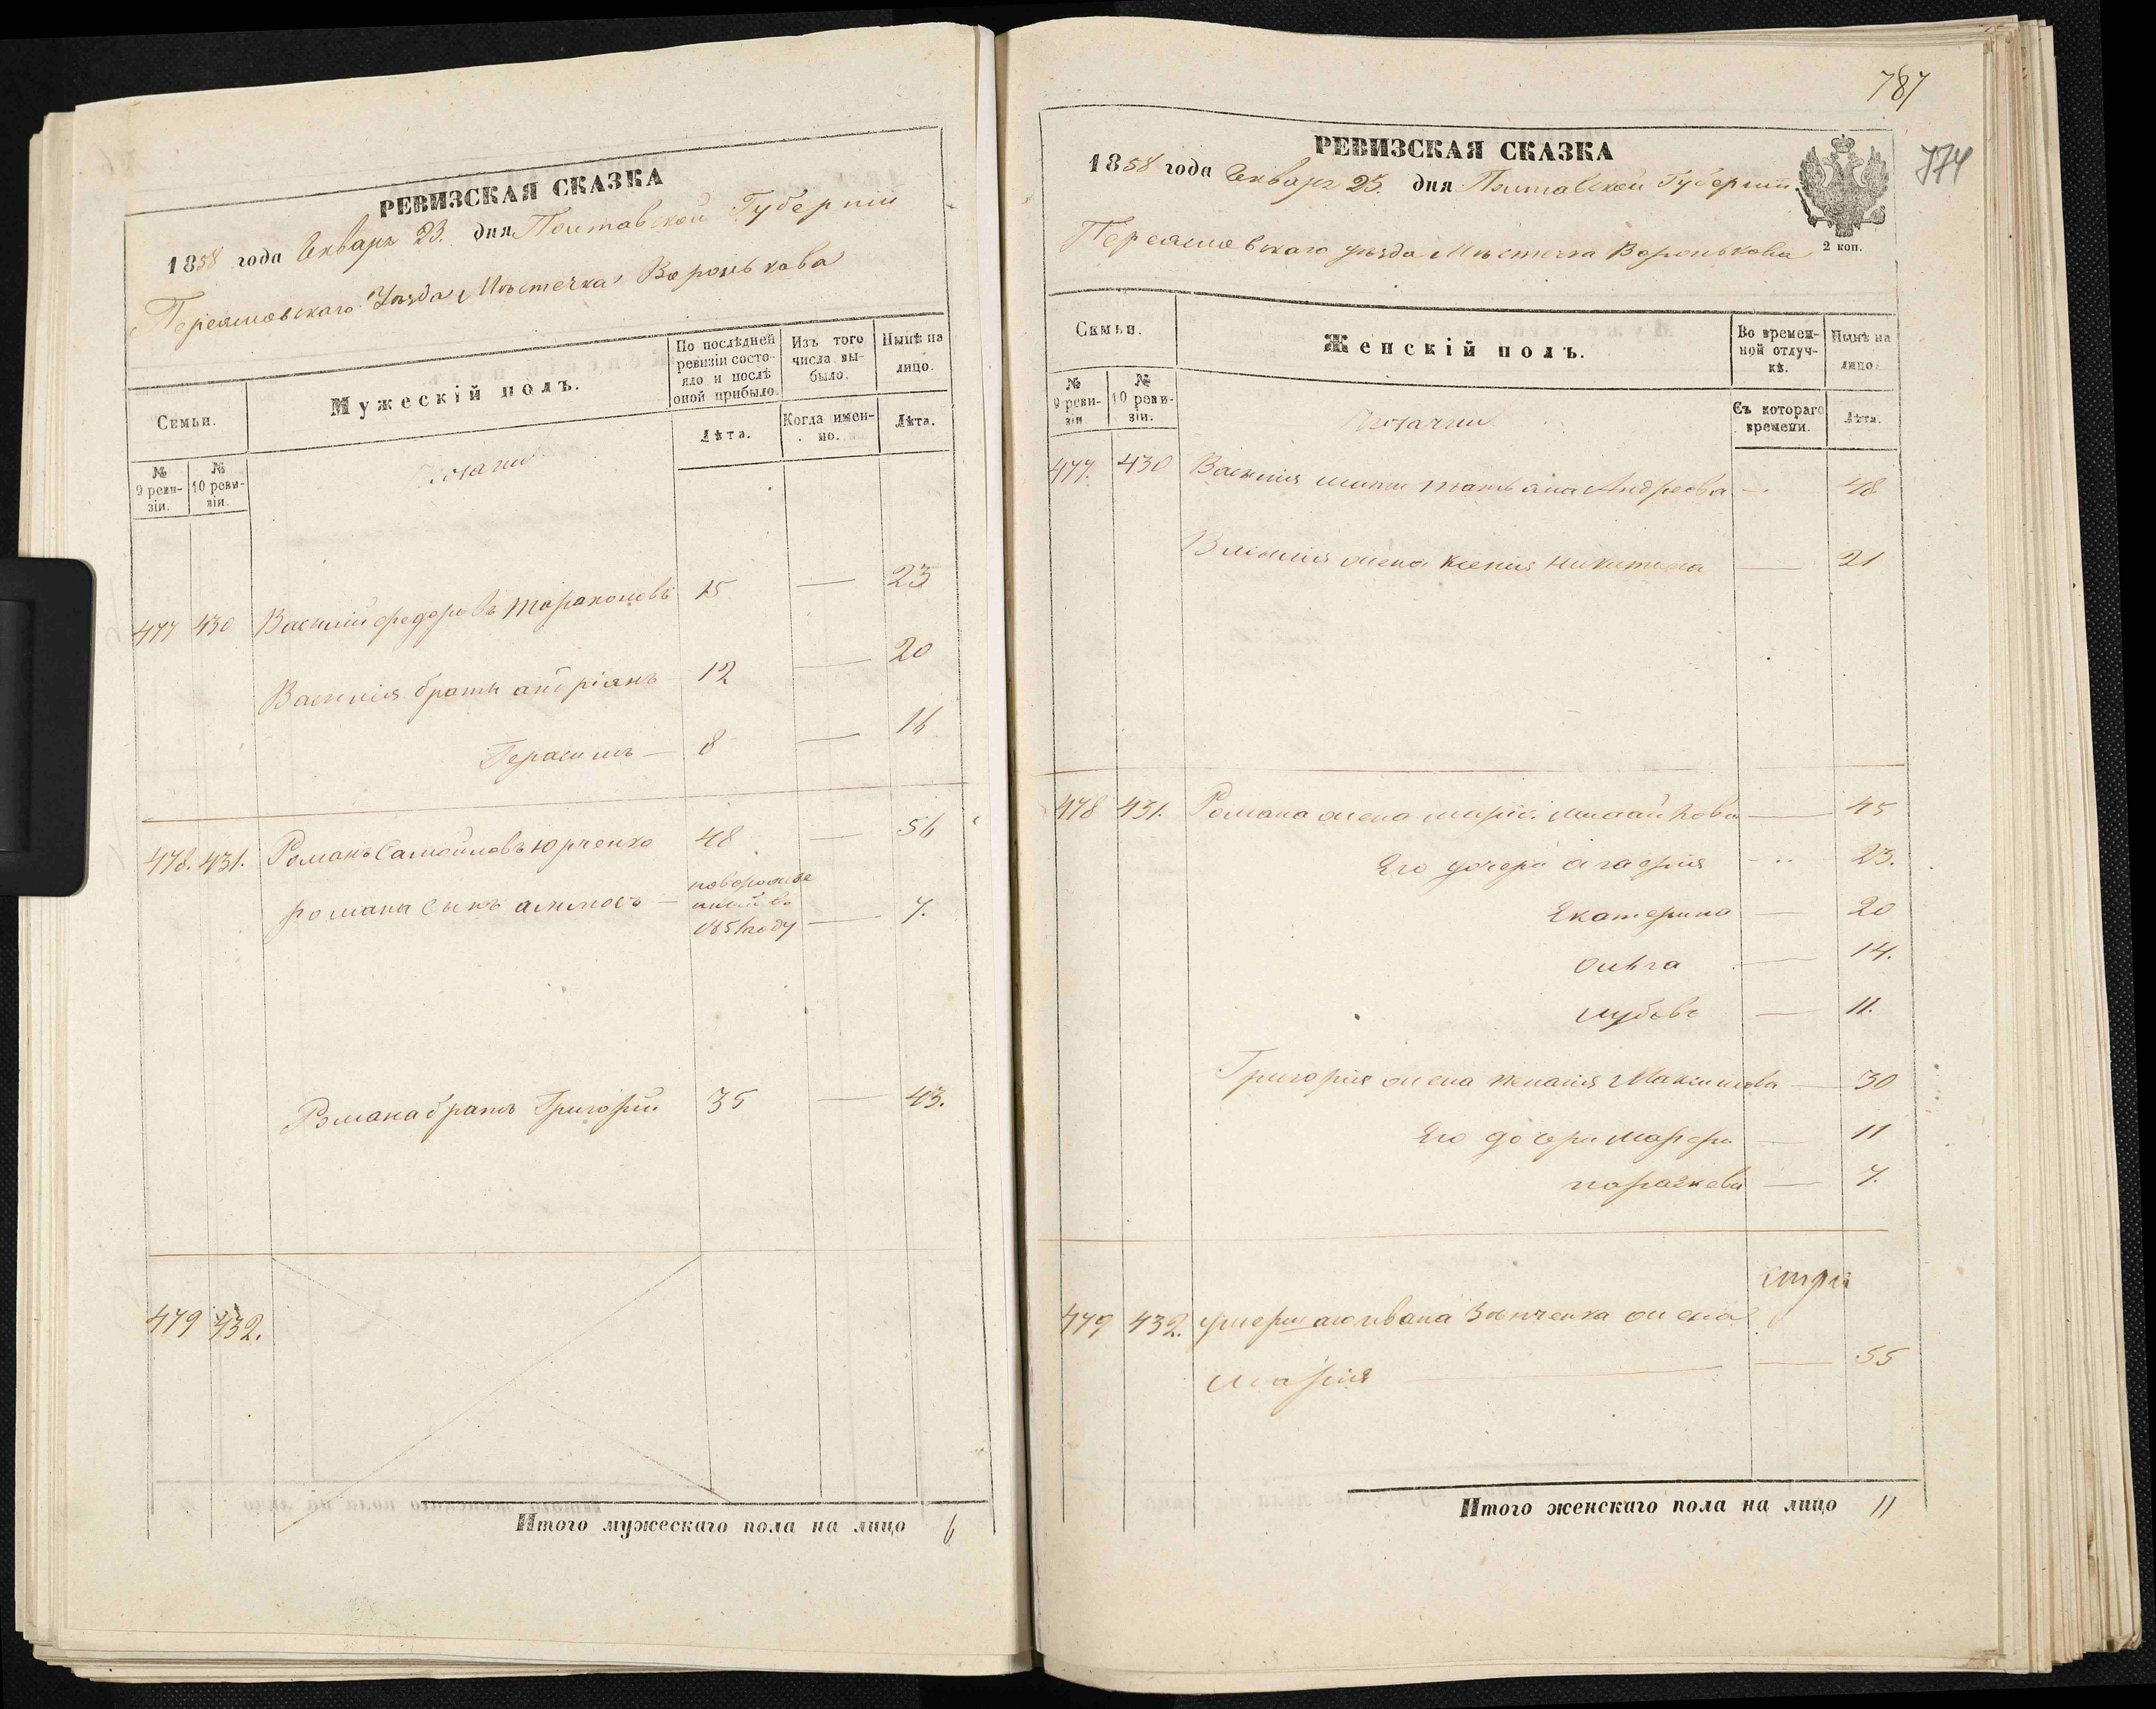 РЕВИЗСКАЯ СКАЗКА
1858 года Января 23. дня Полтавской Губерніи
Переяславскаго Уѣзда Мѣстечка Воронькова
Семьи.
Мужескій полъ.
По послѣдней ревизіи состояло и послѣ оной прибыло.
Изъ того числа выбыло.
Нынѣ на лицо.
№ 9 ревизіи.
№ 10 ревизіи.
Лѣта.
Когда именно.
Лѣта.
Козаки
477 430 Василий федоровъ Тараконовъ 15 — 23
Василія братъ андріянъ 12 — 20
Герасимъ — 8 — 16
478. 431. Романъ Самойловъ Юрченко 48 — 56
романа сынъ —
въ
1851 году — 7.
Романа братъ Григорій 35 — 43.
479 432.
Итого мужескаго пола на лицо 6
787
774
РЕВИЗСКАЯ СКАЗКА
1858 года Января 23. дня Полтавской Губерніи
2 коп.
Переяславскаго уѣзда Мѣстечка Воронькова
Семьи.
Женскій полъ.
Во временной отлучкѣ.
Нынѣ на лицо.
№ 9 ревизіи.
№ 10 ревизіи.
Съ котораго времени.
Лѣта.
Козачки
477. 430 Василія мати татьяна Андреева — 48
Василія жена ксенія никитина — 21
478 431. Романа жена марія — 45
Его дочери агафія — 23.
Екатерина — 20
Ольга — 14.
Любовь — 11.
Григорія жена Максимова — 30
Его дочери марфа — 11
параскева — 7.
479 432. умершаго ивана жена
марія — 55
Итого женскаго пола на лицо 11